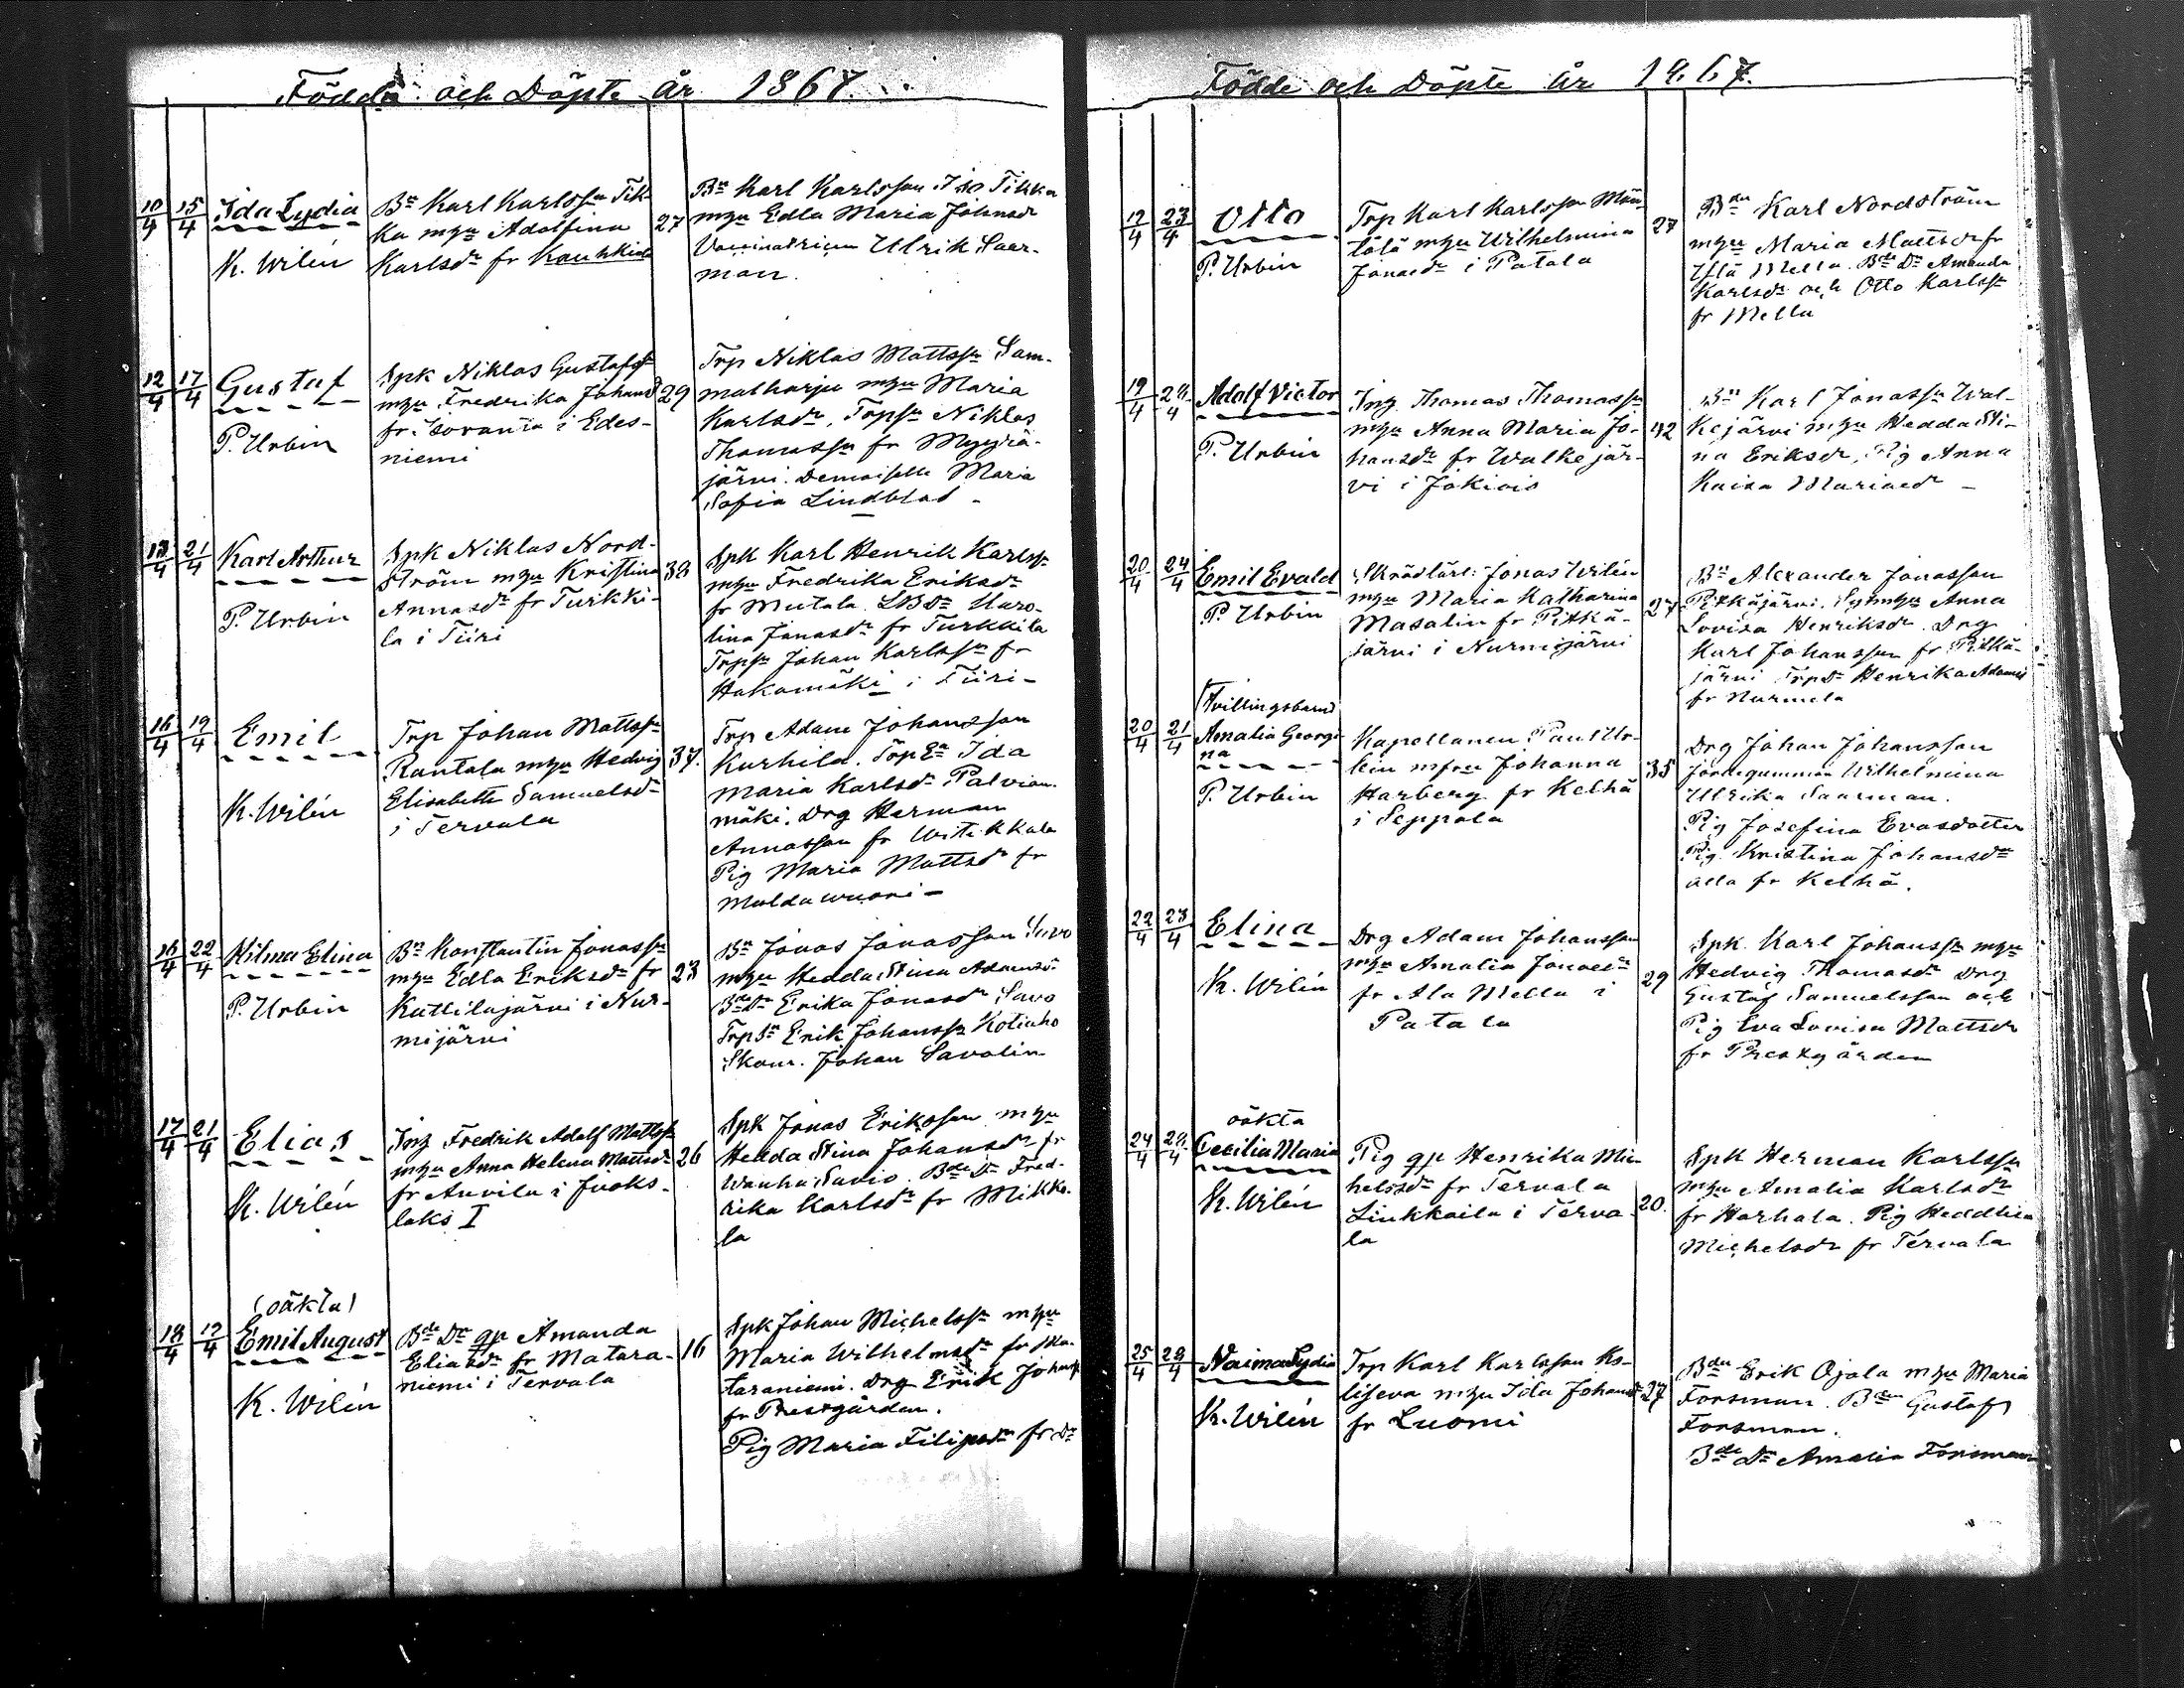 Födda och Döpte år 1867.
10/4 15/4 Ida Lydia
K. Wilén
Bn Karl Karlssn Tik-
ka mhu Adolfina
Karlsdr fr Kauhkiala
27
Bn Karl Karlsson Iso Tikka
mhu Edla Maria Johnsdr
Vaccinatricen Ulrik Saar-
man.
12/4 17/4 Gustaf
P. Urbin
Spk Niklas Gustafssn
mhu Fredrika Johansd
fr Isoranta i Edes-
niemi
29
Trp Niklas Mattssn Sam-
malharju mhu Maria
Karlsdr, Trpsn Niklas
Thomassn fr Myyrä-
järvi. Demoiselle Maria
Sofia Lindblad -
13/4 21/4 Karl Arthur
P. Urbin
Spk Niklas Nord-
ström mhu Kristina
Annasdr fr Turkki-
la i Tiiri
38
Spk Karl Henrik Karlssn
mhu Fredrika Eriksdr
fr Mutala.
lina Jonasdr fr Turkkila
Trpsn Johan Karlssn fr
Hakamäki i Tiiri -
16/4 19/4 Emil
K. Wilén
Trp Johan Mattssn
Rantala mhu Hedvig
Elisabeth Samuelsdr
i Tervala
37.
Trp Adam Johansson
Kurhila. TrpEa Ida
Maria Karlsdr Palvian-
mäki. Drg Herman
Annasson fr Witikkala
Pig Maria Mattsdr fr
Muldawuori -
16/4 22/4 Hilma Elina
P. Urbin
Bn Konstantin Jonassn
mhu Edla Eriksdr fr
Kattilajärvi i Nur-
mijärvi
23
Bn Jonas Jonasson Savo
mhu Hedda Stina Adamsdr
Bde Dr Erika Jonasdr Savo
TrpSn Erik Johanssn Kotiaho
Skom. Johan Savolin
17/4 21/4 Elias
K. Wilén
Inh Fredrik Adolf Mattssn
mhu Anna Helena Mattsdr
fr Anvila i Juoks-
laks I
26
Spk Jonas Eriksson mhu
Hedda Stina Johansdr fr
Wanha Savio. Bde Dr Fred-
rika Karlsdr fr Mikko-
la
(oäkta)
18/4 19/4 Emil August
K. Wilén
Bde Dr gp Amanda
Eliasdr fr Matara-
niemi i Tervala
16
Spk Johan Michelssn mhu
Maria Wilhelmsdr fr Ma-
taraniemi. Drg Erik Johanss
fr Prestgården.
Pig Maria Filipsdr fr Do
Födde och Döpte år 1867.
12/4 23/4 Otto
P. Urbin
Trp Karl Karlsson Män-
tölä mhu Wilhelmina
Jonasdr i Patala
27
Bdn Karl Nordström
mhu Maria Mattsdr fr
Ylä Mella. Bde Dr Amanda
Karlsdr och Otto Karlssn
fr Mella
19/4 24/4 Adolf Victor
P. Urbin
Inh. Thomas Thomassn
mhu Anna Maria Jo-
hansdr fr Walkejär-
vi i Jokiois
42
Bn Karl Jonassn Wal-
kejärvi mhu Hedda Sti-
na Eriksdr, Pig Anna
Kaisa Mariaedr -
20/4 24/4 Emil Evald
P. Urbin
Skräd lärl: Jonas Wilén
mhu Maria Katharina
Masalin fr Pitkä-
järvi i Nurmijärvi
27
Bn Alexander Jonasson
Pitkäjärvi. Sythhu Anna
Lovisa Henriksdr. Drg
Karl Johansson fr Pitkä-
järvi TrpDr Henrika Adamsd
fr Nurmela
Tvillingsbarn
20/4 21/4 Amalia Georgi
na
P. Urbin
Kapellanen Paul Ur-
bin mfru Johanna
Harberg fr Kelhä
i Seppola
35
Drg Johan Johansson
Jordegumman Wilhelmina
Ulrika Saarman.
Pig Josefina Evasdotter
Pig Kristina Johansdr
alla fr Kelhä.
22/4 23/4 Elina
K. Wilén
Drg Adam Johansson
mhu Amalia Jonaedr
fr Ala Mella i
Patala
29
Spk Karl Johanssn mhu
Hedvig Thomasdr Drg
Gustaf Samuelsson och
Pig Eva Lovisa Mattsdr
fr Prestgården
oäkta
24/4 28/4 Cecilia Maria
K. Wilén
Pig gp Henrika Mi-
helsdr fr Tervala
Liukkaila i Terva-
la
20.
Spk Herman Karlssn
mhu Amalia Karlsdr
fr Harhala. Pig Heddlisa
Michelsdr fr Tervala
25/4 28/4 Naima Lydia
K. Wilén
Trp Karl Karlsson Ko-
liseva mhu Ida Johansdr
fr Luomi
27
Bdn Erik Ojala mhu Maria
Forsman. Bdn Gustaf
Forsman.
Bde Dr Amalia Forsman